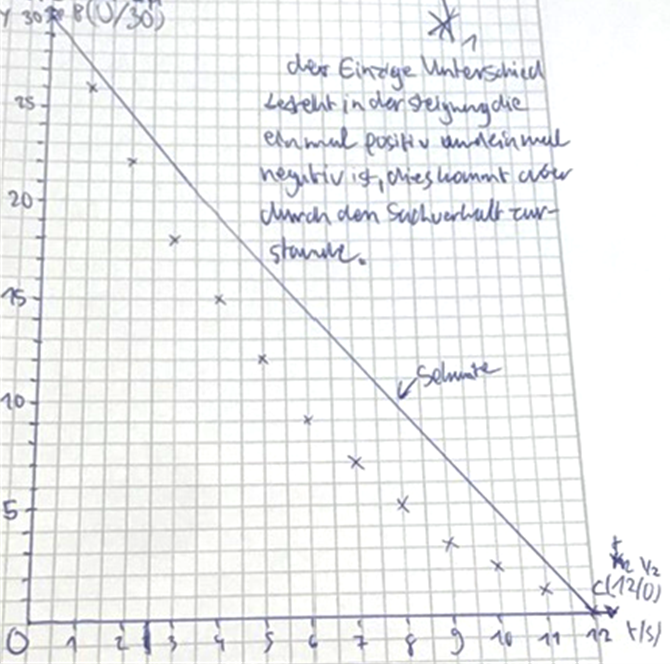 Y 30 B(0/30)
*1
der Einzige Unterschied
besteht in der steigung die
einmal positiv und einmal
negativ ist, dies kommt aber
durch den Sachverhalt zur-
stande.
25
20
15
10
Sekante
5
C(12/0)
0 1 2 3 4 5 6 7 8 9 10 11 12 t(s)